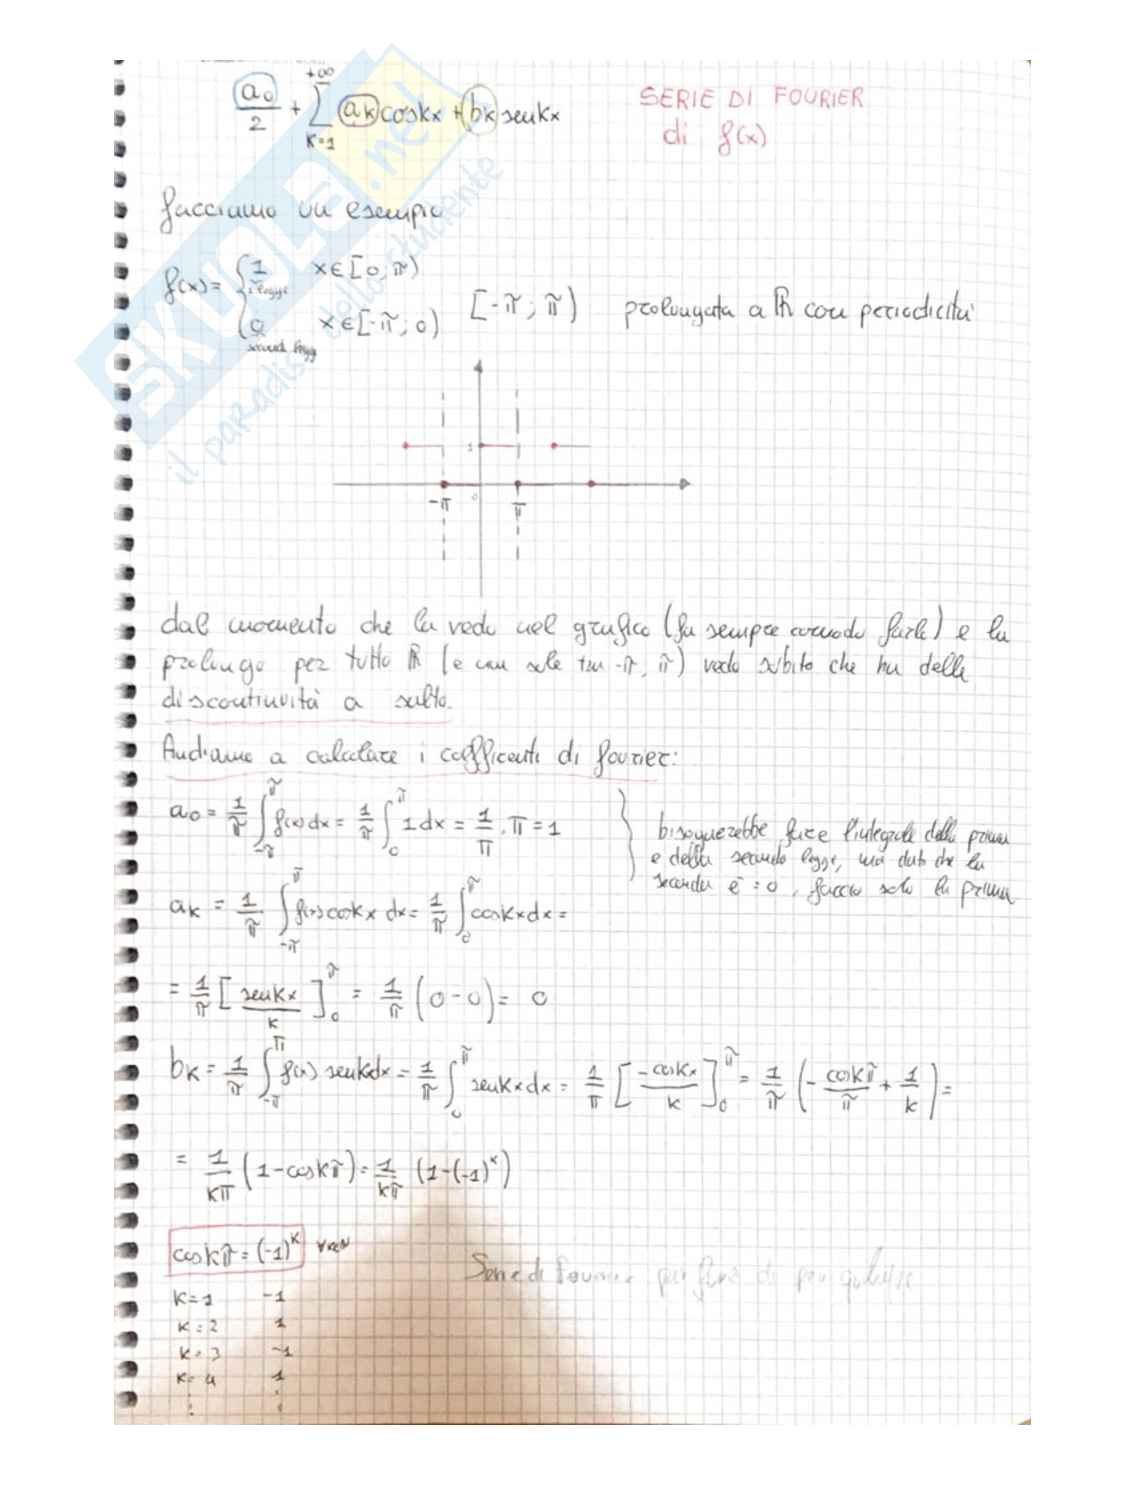 a₀/2 + +∞ ∑ K=1 aK cosKx + bK senKx
SERIE DI FOURIER
di f(x)
facciamo un esempio
f(x) = { 1 x∈[0;π)
1ª legge
0 x∈[-π;0)
[-π;π) prolungata a ℝ con periodicità
1
-π 0 π
dal momento che la vedo nel grafico (fa sempre comodo farlo) e la
prolungo per tutto ℝ (e non solo tra -π, π) vedo subito che ha delle
discontinuità a salto.
Andiamo a calcolare i coefficenti di fourier:
a₀ = 1/π ∫_{-π}^{π} f(x)dx = 1/π ∫_{0}^{π} 1dx = 1/π · π = 1
bisognerebbe fare l'integrale della prima
e della seconda legge, ma dato che la
seconda è = 0, faccio solo la prima
aK = 1/π ∫_{-π}^{π} f(x)cosKx dx = 1/π ∫_{0}^{π} cosKxdx =
= 1/π [senKx/K]_{0}^{π} = 1/π (0-0) = 0
bK = 1/π ∫_{-π}^{π} f(x) senKdx = 1/π ∫_{0}^{π} senKxdx = 1/π [-cosKx/K]_{0}^{π} = 1/π (- cosKπ/π + 1/K) =
= 1/Kπ (1-cosKπ) = 1/Kπ (1-(-1)^K)
cosKπ = (-1)^K ∀K∈N
K=1 -1
K=2 1
K=3 -1
K=4 1
Serie di Fourier per
SKUOLA.net
il paradiso dello studente